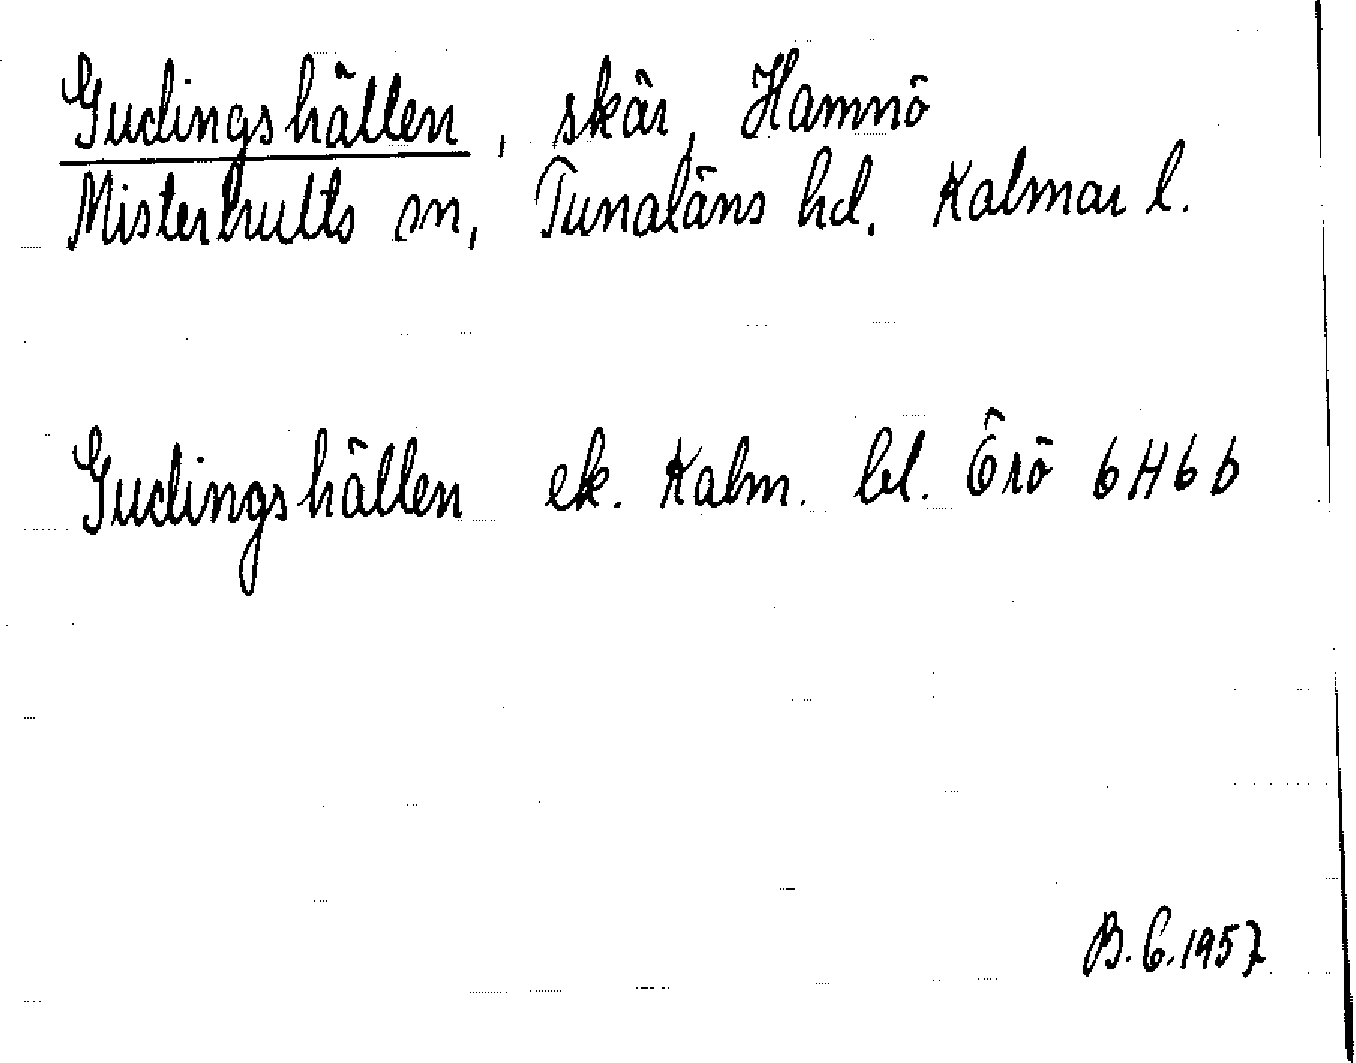 Gudingshällen, skär, Hamnö
Misterhults sn, Tunaläns hd. Kalmar l.
Gudingshällen ek. Kalm. bl. Örö 6H6b
B.C.1957